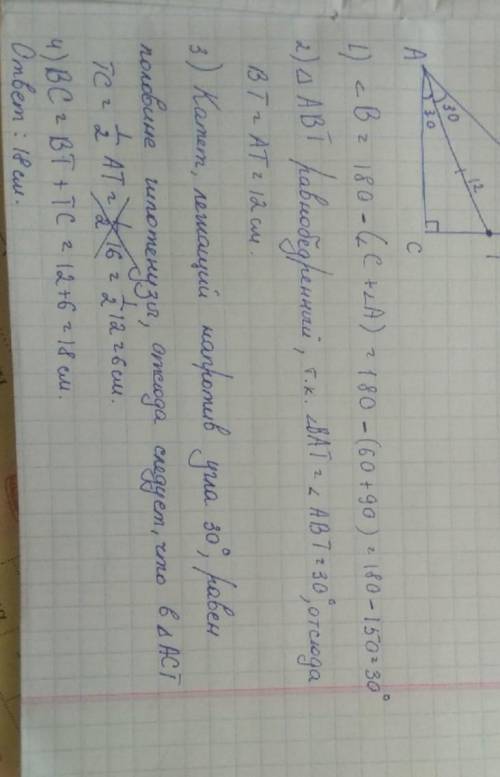 A
30
30
12
C
1) ∠B = 180 - (∠C + ∠A) = 180 - (60 + 90) = 180 - 150 = 30°
2) △ ABT равнобедренный, т.к. ∠BAT = ∠ABT = 30°, отсюда
BT = AT = 12 см.
3) Катет, лежащий напротив угла 30°, равен
половине гипотенузы, отсюда следует, что в △ ACT
TC = 1/2 AT = 1/2 16 = 1/2 12 = 6 см.
4) BC = BT + TC = 12 + 6 = 18 см.
Ответ: 18 см.